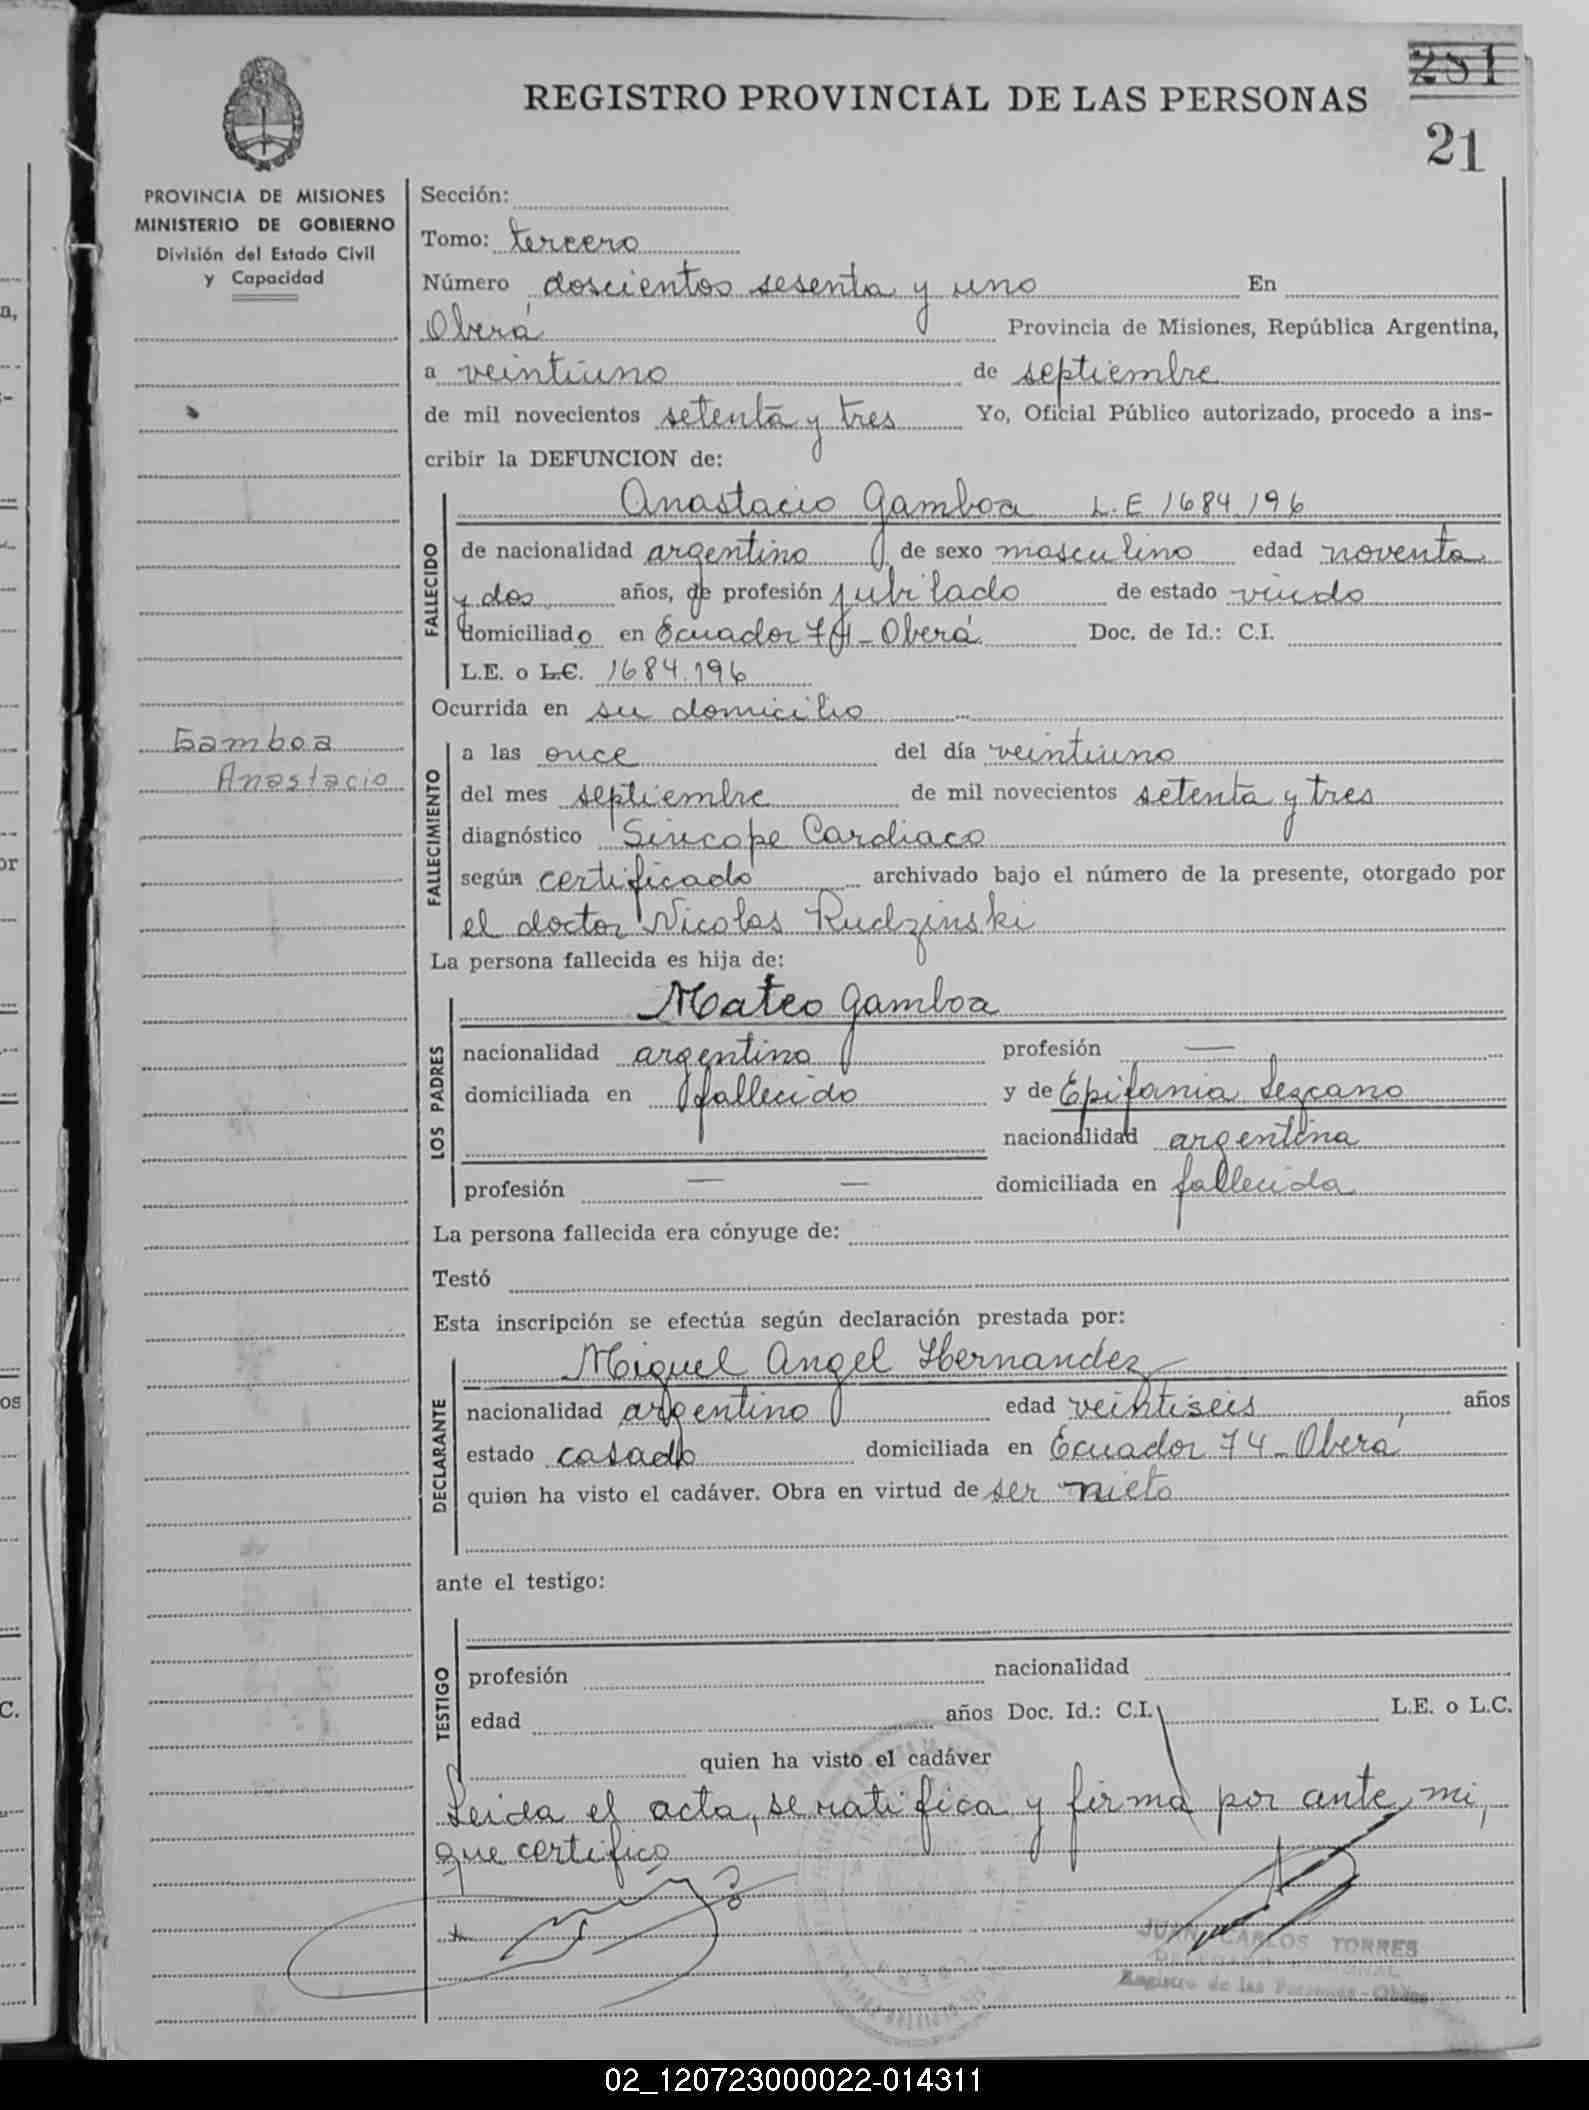 281
REGISTRO PROVINCIAL DE LAS PERSONAS
21
PROVINCIA DE MISIONES
MINISTERIO DE GOBIERNO
División del Estado Civil
y Capacidad
Gamboa
Anastacio
Sección:
Tomo: tercero
Número doscientos sesenta y uno En
Oberá Provincia de Misiones, República Argentina,
a veintiuno de septiembre
de mil novecientos setenta y tres Yo, Oficial Público autorizado, procedo a ins-
cribir la DEFUNCION de:
FALLECIDO
Anastacio Gamboa L.E 1684.196
de nacionalidad argentino de sexo masculino edad noventa
y dos años, de profesión jubilado de estado viudo
domiciliado en Ecuador 74 - Oberá Doc. de Id.: C.I.
L.E. o L.C. 1684.196
Ocurrida en su domicilio
FALLECIMIENTO
a las once del día veintiuno
del mes septiembre de mil novecientos setenta y tres
diagnóstico Sincope Cardiaco
según certificado archivado bajo el número de la presente, otorgado por
el doctor Nicolas Rudzinski
La persona fallecida es hija de:
LOS PADRES
Mateo Gamboa
nacionalidad argentino profesión —
domiciliada en fallecido y de Epifania Lezcano
nacionalidad argentina
profesión — — domiciliada en fallecida
La persona fallecida era cónyuge de:
Testó
Esta inscripción se efectúa según declaración prestada por:
DECLARANTE
Miguel Angel Hernandez
nacionalidad argentino edad veintiseis años
estado casado domiciliada en Ecuador 74 - Oberá
quien ha visto el cadáver. Obra en virtud de ser nieto
ante el testigo:
TESTIGO
profesión nacionalidad
edad años Doc. Id.: C.I. L.E. o L.C.
quien ha visto el cadáver
Leida el acta, se ratifica y firma por ante mi,
que certifico
JUAN CARLOS TORRES
Registro de las Personas - Oberá
02_120723000022-014311